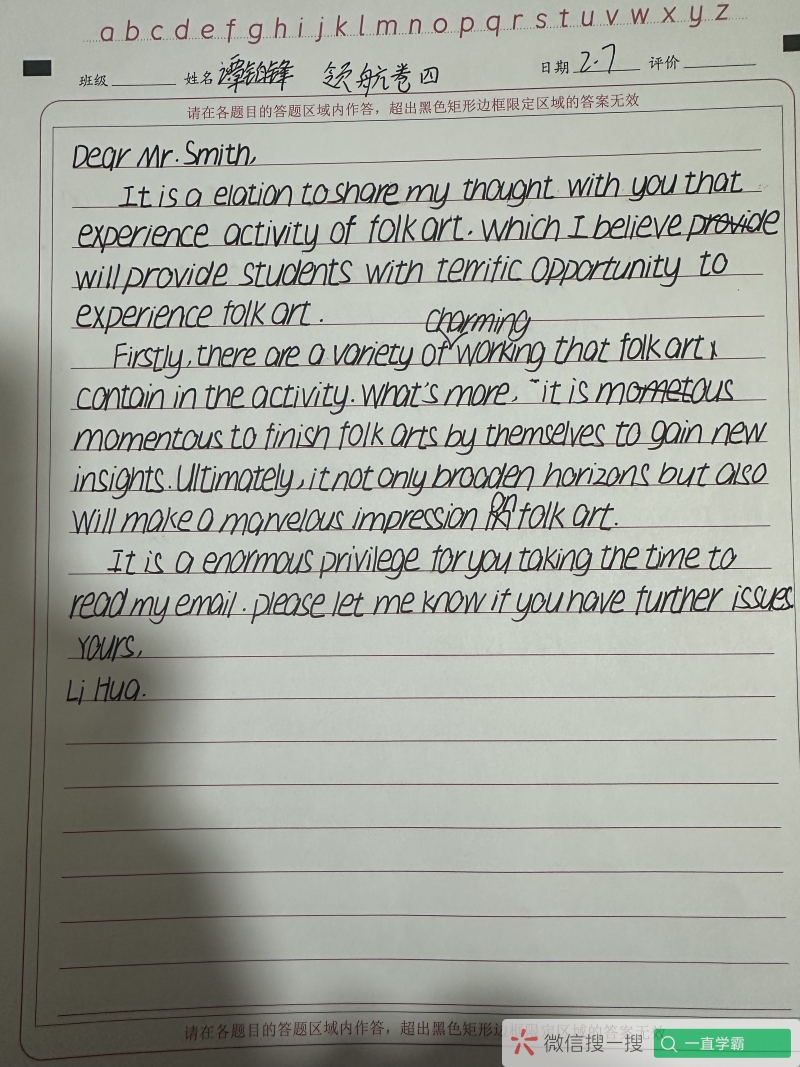 a b c d e f g h i j k l m n o p q r s t u v w x y z
班级 姓名 谭铂锋 领航卷四 日期 2.7 评价
请在各题目的答题区域内作答，超出黑色矩形边框限定区域的答案无效
Dear Mr. Smith,
It is a elation to share my thought with you that
experience activity of folk art. Which I believe provide
will provide students with terrific opportunity to
experience folk art.
charming
Firstly, there are a variety of working that folk art
contain in the activity. What's more, it is mometous
momentous to finish folk arts by themselves to gain new
insights. Ultimately, it not only broaden horizons but also
will make a marvelous impression on folk art.
It is a enormous privilege for you taking the time to
read my email. please let me know if you have further issues
Yours,
Li Hua.
请在各题目的答题区域内作答，超出黑色矩形边框限定区域的答案无效
微信搜一搜 一直学霸